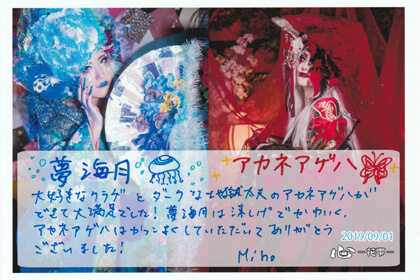 夢海月
アカネアゲハ
大好きなクラゲとダークな地獄太夫のアカネアゲハが
できて大満足でした!夢海月は涼しげでかわいく、
アカネアゲハはカッコよくしていただいてありがとう
ございました!
Miho
2019/09/01
心-花雫-